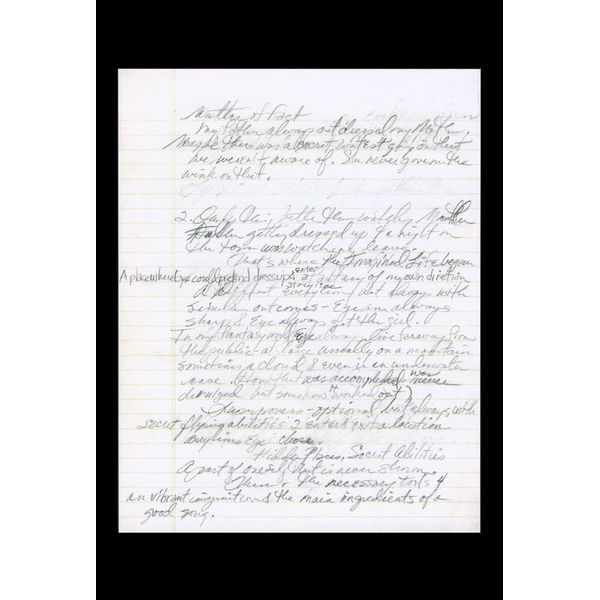 Matter of Fact
My Father always outdressed my Mother,
Maybe there was a secret contest going on that
we weren't aware of. She never gave me the
wink on that.
2. Only thing better than watching Mother
Father getting dressed up 4 a night on
the town was watching leave
That's where the Imagined Life began
A place where Eye could pretend dress up & enter a fantasy of my own direction
A different storyline everytime, but always with
similar outcomes - Eye am always
sharp & Eye always get the girl.
In my fantasy world Eye always live far away from
the public at large usually on a mountain
sometimes a cloud & even in an underwater
cave. (How that was accomplished was never
divulged but somehow it worked out)
Superpowers - optional but always with
secret flying abilities 2 enter & exit a location
anytime Eye chose.
Hidden Places, Secret Abilities
A part of oneself that is never shown.
These r the necessary tools 4
an vibrant imagination & the main ingredients of a
good song.